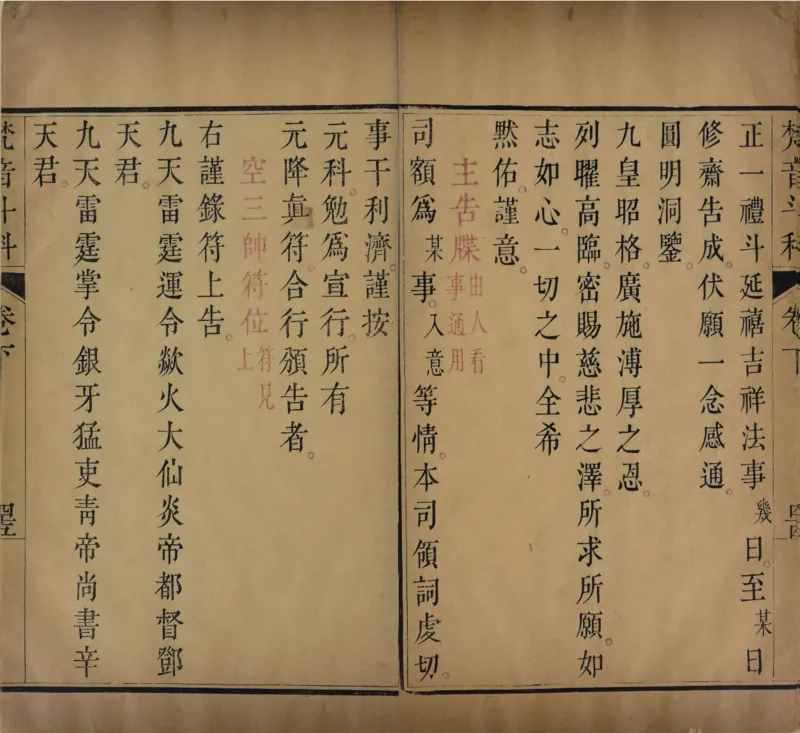 梵音斗科
卷下
正一禮斗延禧吉祥法事幾日。至某日
修齋告成。伏願一念感通。
圓明洞鑒。
九皇昭格。廣施溥厚之恩。
列曜高臨。密賜慈悲之澤。所求所願。如
志如心。一切之中。全希
黙佑。謹意。
主告牒由人看事通用
司額爲某事。入意等情。本司領詞虔切。
事干利濟。謹按
元科。勉爲宣行。所有
元降眞符。合行頒告者。
空三帥符位符見上
右謹錄符上告。
九天雷霆運令歘火大仙炎帝都督鄧
天君。
九天雷霆掌令銀牙猛吏靑帝尚書辛
天君。
梵音斗科
卷下